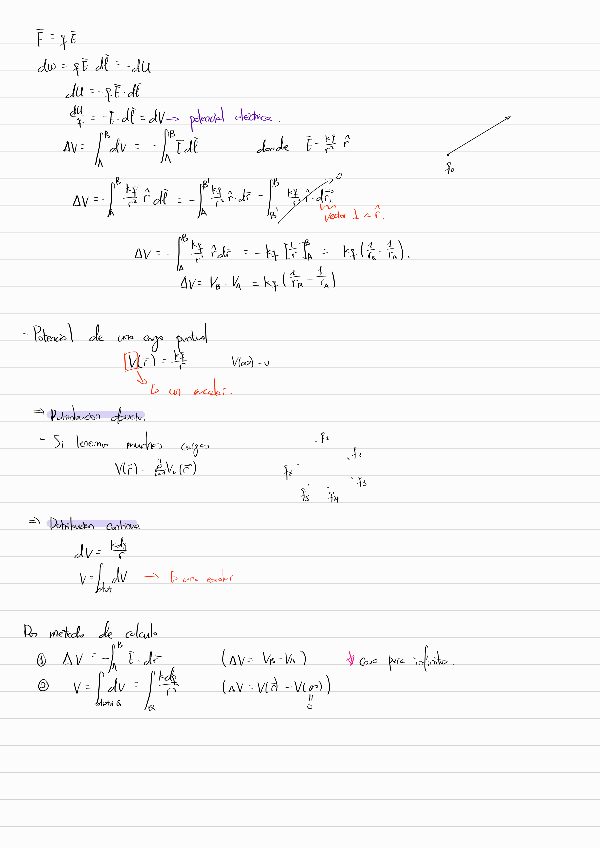 F̄ = qĒ
dω = qĒ · dl̄ = -dU
dU = -qĒ · dl̄
dU/q = -Ē · dl̄ = dV → potencial eléctrico.
ΔV = ∫_A^B dV = -∫_A^B Ē dl̄ donde Ē = kq/r² r̂
q₀
ΔV = -∫_A^B kq/r² r̂ dl̄ = -∫_A^B' kq/r² r̂ · dr̄ - ∫_B'^B kq/r² r̂ · dr̄ 0
vector ⊥ a r̂.
ΔV = -∫_A^B kq/r² r̂ dr̄ = -kq [1/r]_A^B = kq (1/r_B - 1/r_A).
ΔV = V_B - V_A = kq (1/r_B - 1/r_A)
- Potencial de una carga puntual
V(r̄) = kq/r V(∞) = 0
Es un escalar.
⇒ Distribución discreta.
- Si tenemos muchas cargas
V(r̄) = Σ Vᵢ(r̄)
q₁ q₂ q₃ q₄ q₅ q₆
⇒ Distribución continua
dV = kdq/r
V = ∫ dV → Es un escalar
Dos métodos de cálculo
① ΔV = -∫_A^B Ē · dr̄ (ΔV = V_B - V_A) ↓ caso para infinito.
② V = ∫ dV = ∫_Q kdq/r² (ΔV = V(r̄) - V(∞))
0